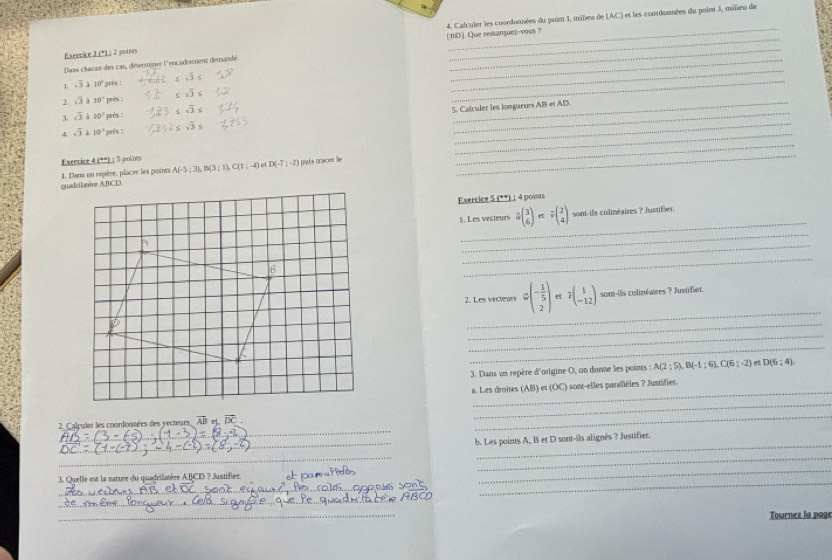 Exercice 3 (*) : 2 points
Dans chacun des cas, déterminer l'encadrement demandé.
1. √3 à 10⁰ près : ≤ √3 ≤
2. √3 à 10⁻¹ près : ≤ √3 ≤
3. √3 à 10⁻² près : ≤ √3 ≤
4. √3 à 10⁻³ près : ≤ √3 ≤
Exercice 4 (**) : 5 points
1. Dans un repère, placer les points A(-5 ; 3), B(3 ; 1), C(1 ; -4) et D(-7 ; -2) puis tracer le
quadrilatère ABCD.
A
B
D
C
2. Calculer les coordonnées des vecteurs AB et DC.
AB = (3 - (-5) ; (1 - 3) = (8 ; -2)
DC = (1 - (-7) ; -4 - (-2) = (8 ; -2)
3. Quelle est la nature du quadrilatère ABCD ? Justifier.
et parallèles
Les vecteurs AB et DC sont egaux, les cotés opposés sont
de même longueur, Cela signifie que le quadrilatère ABCD
4. Calculer les coordonnées du point I, milieu de [AC] et les coordonnées du point J, milieu de
[BD]. Que remarquez-vous ?
5. Calculer les longueurs AB et AD.
Exercice 5 (**) : 4 points
1. Les vecteurs u(3 6) et v(2 4) sont-ils colinéaires ? Justifier.
2. Les vecteurs w(-1/5 2) et z(1 -12) sont-ils colinéaires ? Justifier.
3. Dans un repère d'origine O, on donne les points : A(2 ; 5), B(-1 ; 6), C(6 ; -2) et D(6 ; 4).
a. Les droites (AB) et (OC) sont-elles parallèles ? Justifier.
b. Les points A, B et D sont-ils alignés ? Justifier.
Tournez la page